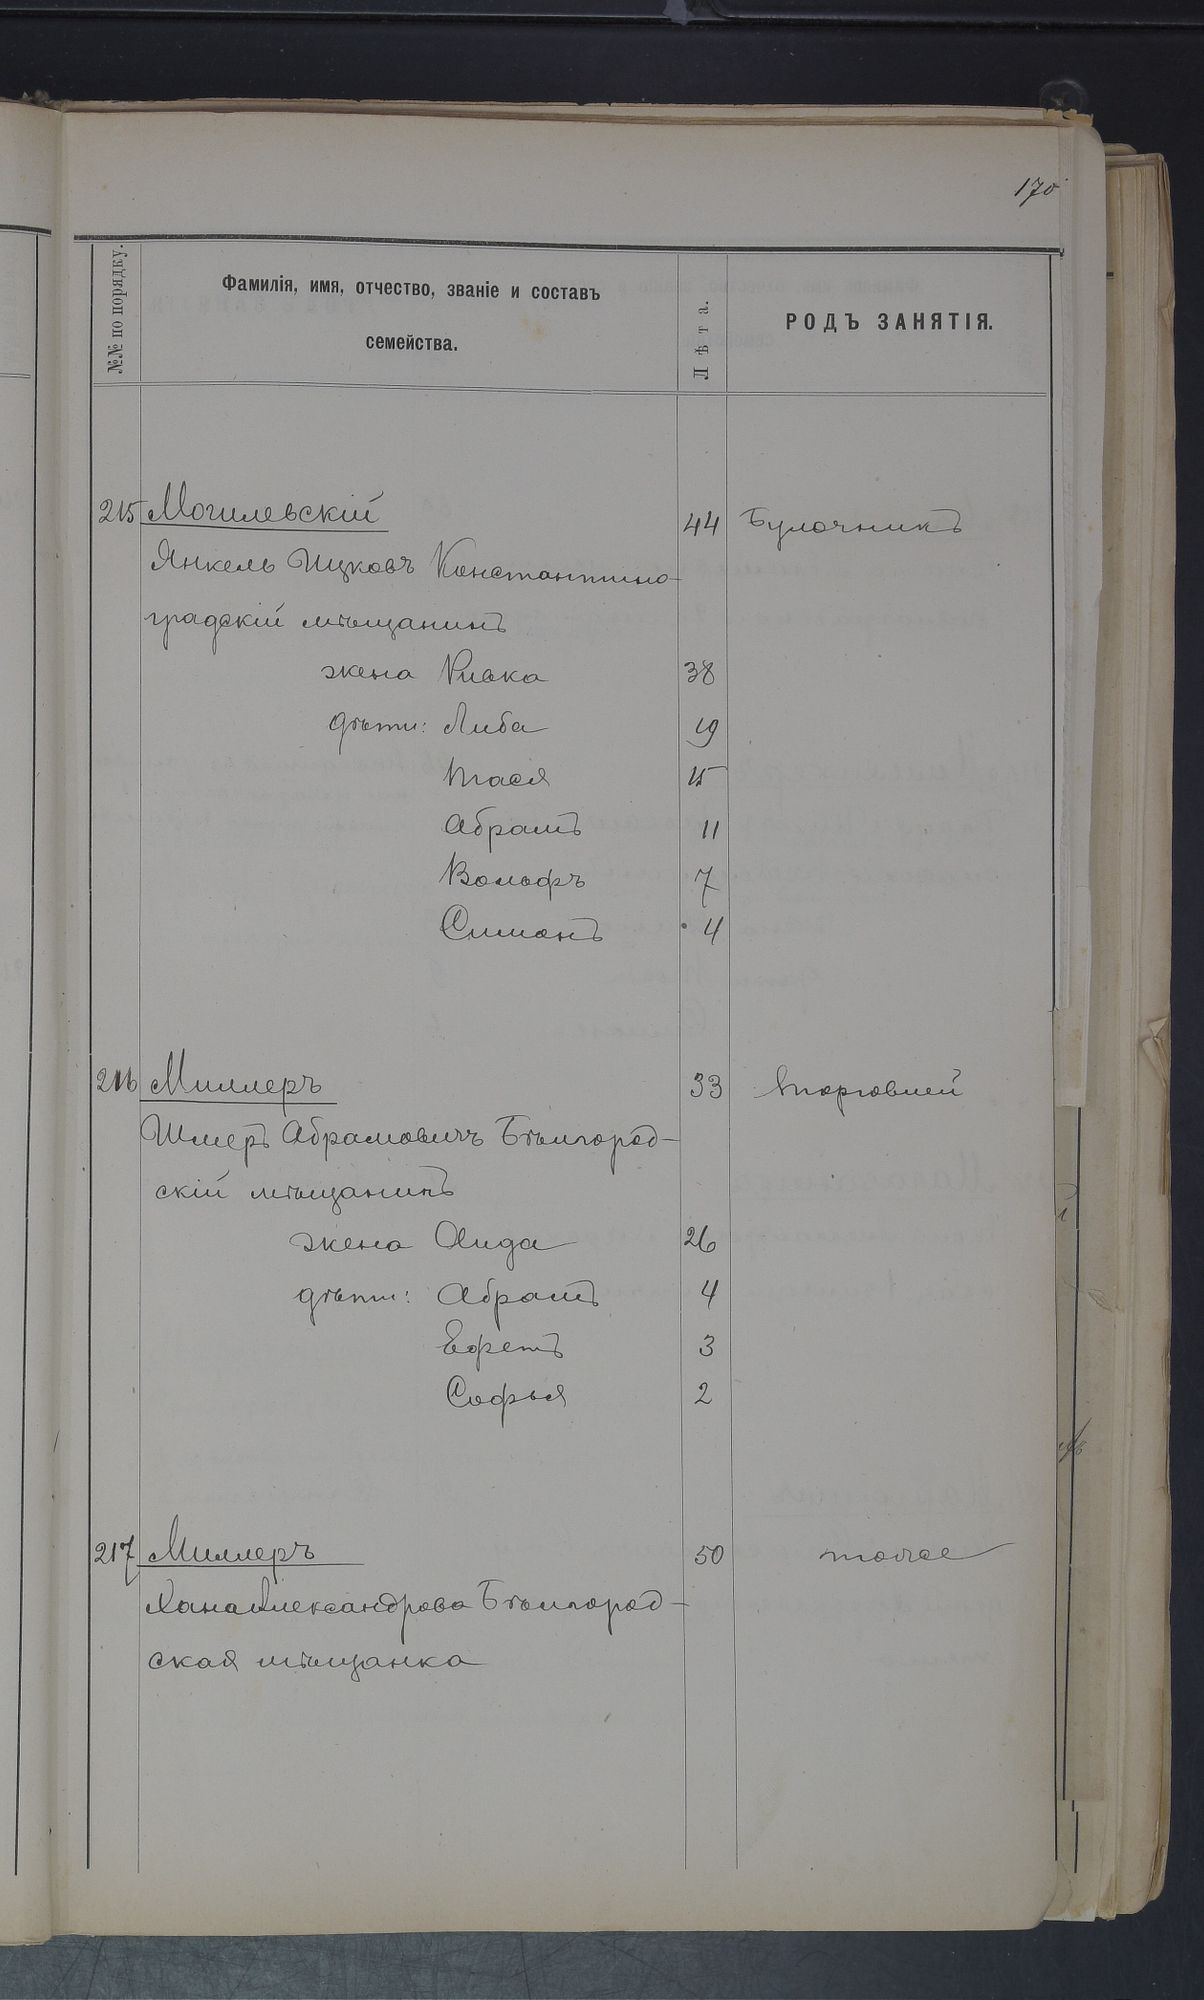 170
№№ по порядку.
Фамилія, имя, отчество, званіе и составъ
семейства.
Лѣта.
РОДЪ ЗАНЯТІЯ.
215 Могилевскій 44 Булочникъ
Янкель Ицковъ Константино-
градскій мѣщанинъ
жена Ривка 38
дѣти: Либа 19
Тася 15
Абрамъ 11
Вольфъ 7
Симонъ 4
216 Миллеръ 33 Торговлей
Шмеръ Абрамовичъ Бѣлгород-
скій мѣщанинъ
жена Аида 26
дѣти: Абрамъ 4
Ефремъ 3
Софья 2
217 Миллеръ 50 тоже
Хана Александрова Бѣлгород-
ская мѣщанка